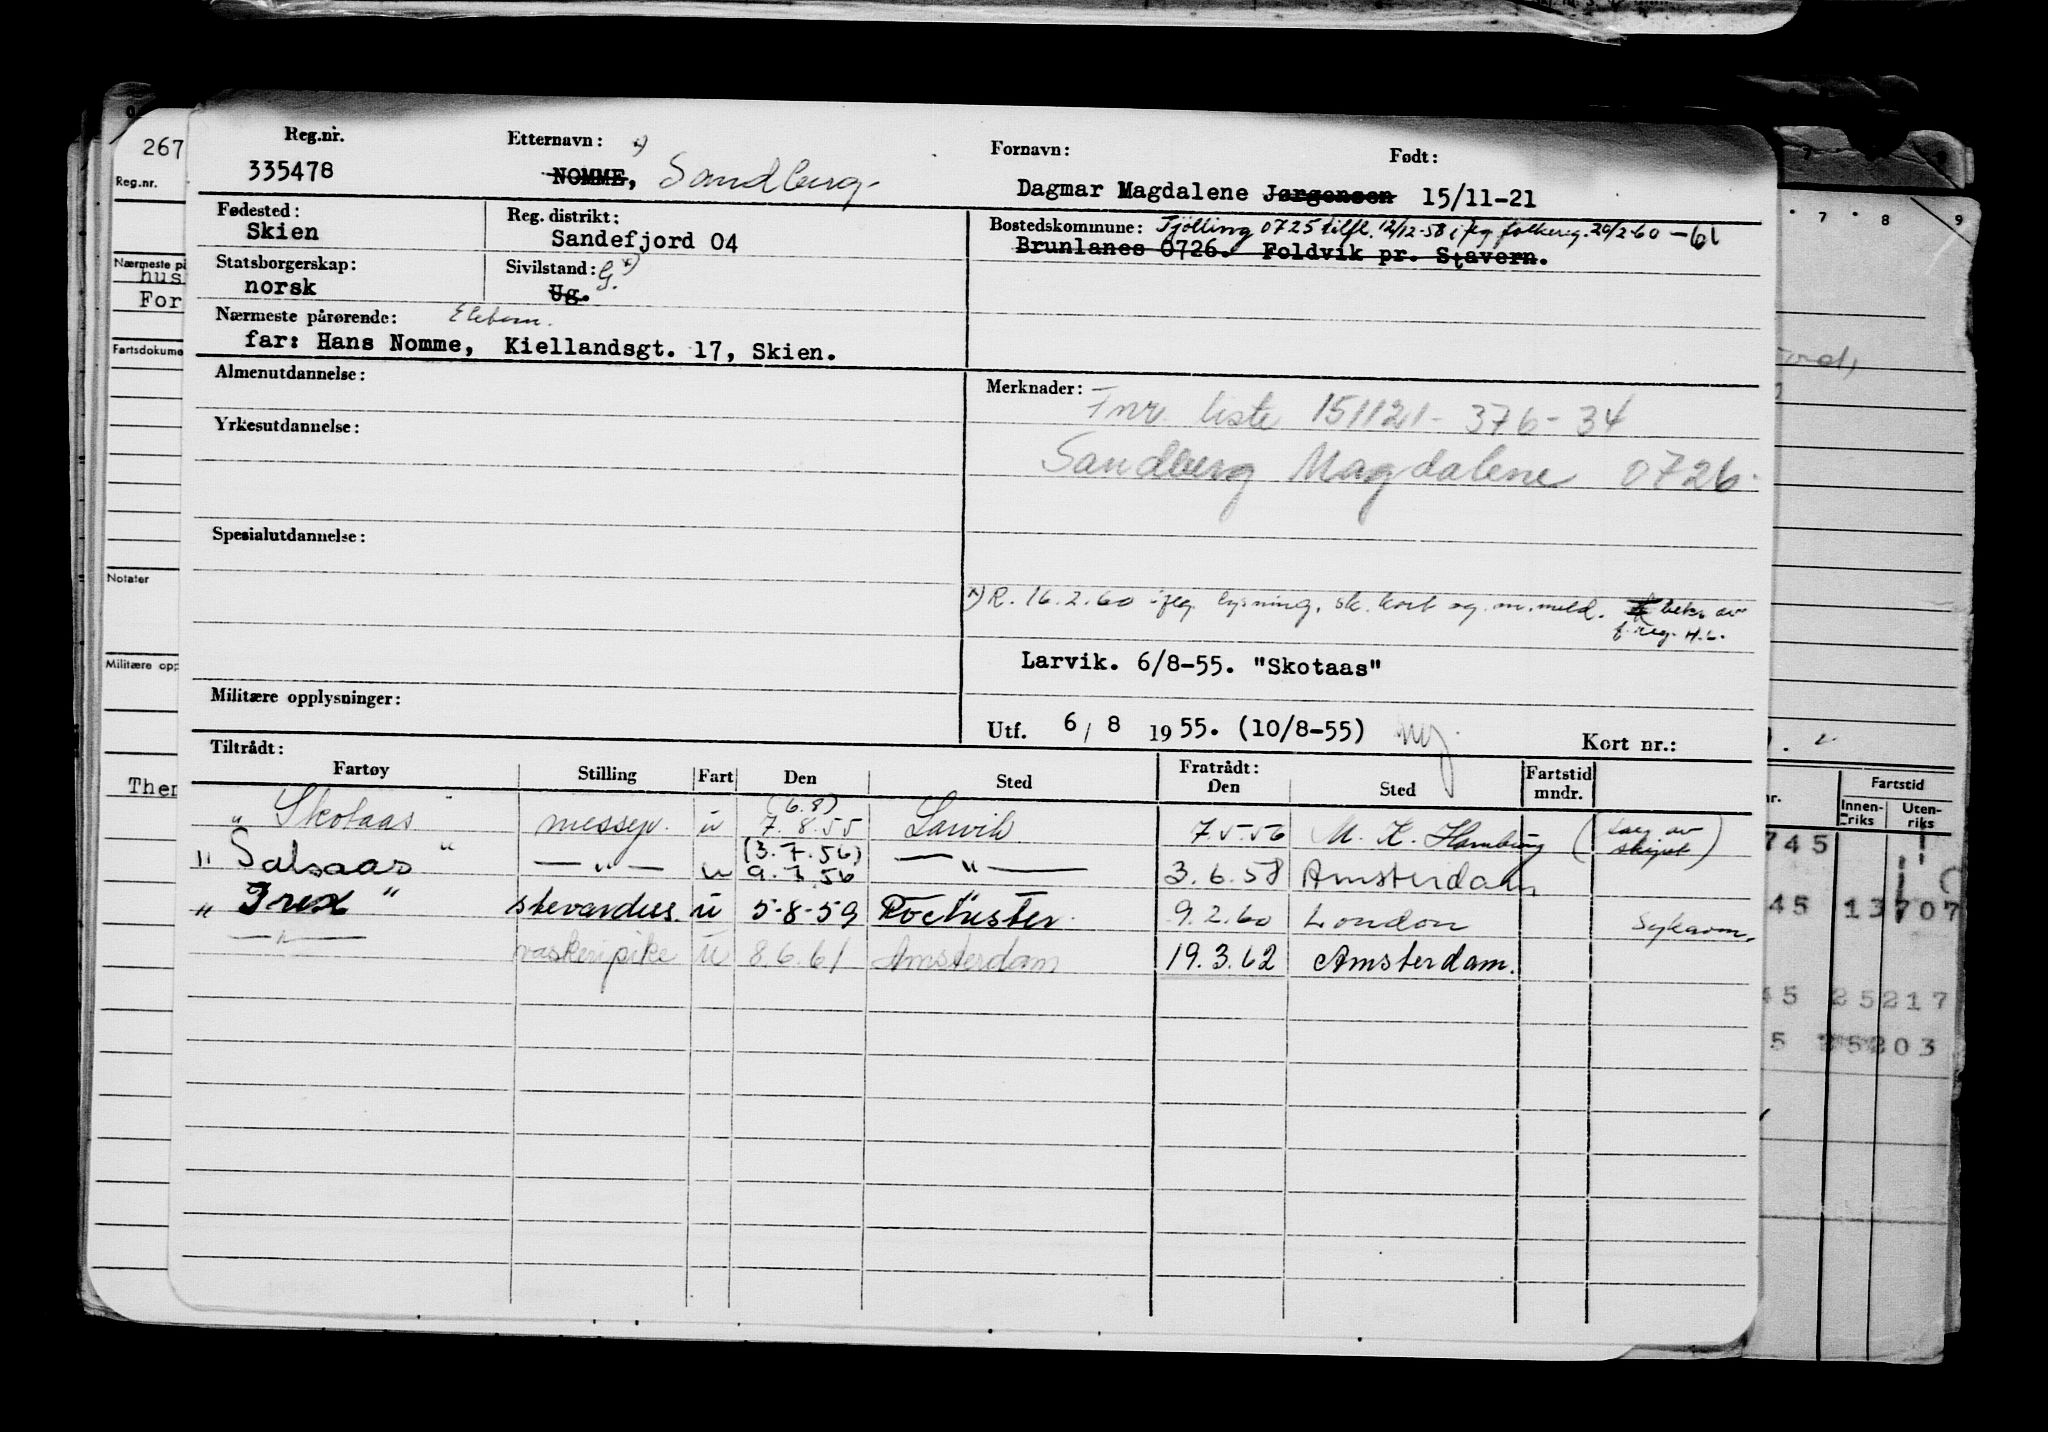 Reg.nr. Etternavn: x) Fornavn: Født:
335478 NOMME, Sandberg Dagmar Magdalene Jørgensen 15/11-21
Fødested: Reg. distrikt: Bostedskommune: Tjølling 0725 tilfl. 12/12-58 i flg folkereg. 20/2-60 -61
Skien Sandefjord 04 Brunlanes 0726. Foldvik pr. Stavern.
Statsborgerskap: Sivilstand: G x)
norsk Ug.
Nærmeste pårørende:
far: Hans Nomme, Kiellandsgt. 17, Skien.
Almenutdannelse: Merknader: Fnr. liste 151121-376-34
Yrkesutdannelse: Sandberg Magdalene 0726
Spesialutdannelse:
x) R. 16.2.60 iflg. lysning, sk. kort og m. meld. bekr. av
f.reg. H.L.
Larvik. 6/8-55. "Skotaas"
Militære opplysninger:
Utf. 6/8 1955. (10/8-55)
Kort nr.:
Tiltrådt: Fratrådt:
Fartøy Stilling Fart Den Sted Den Sted Fartstid mndr.
" Skotaas " messep. u (6.8) 7.8.55 Larvik 7.5.56 M. K. Hamburg ( salg av skipet )
" Salsaas " — " — u (3.7.56) 9.7.56 — " — 3.6.58 Amsterdam
" Irex " stevardess. u 5-8-59 Rochester 9.2.60 London Sykdom.
— " — vaskeripike u 8.6.61 Amsterdam 19.3.62 Amsterdam.
267
Reg.nr.
Nærmeste på
hus
For
Fartsdokume
Notater
Militære opp
Ther
7 8 9
Fartstid
Innen-riks Uten-riks
745
45 13707
45 25217
5 25203